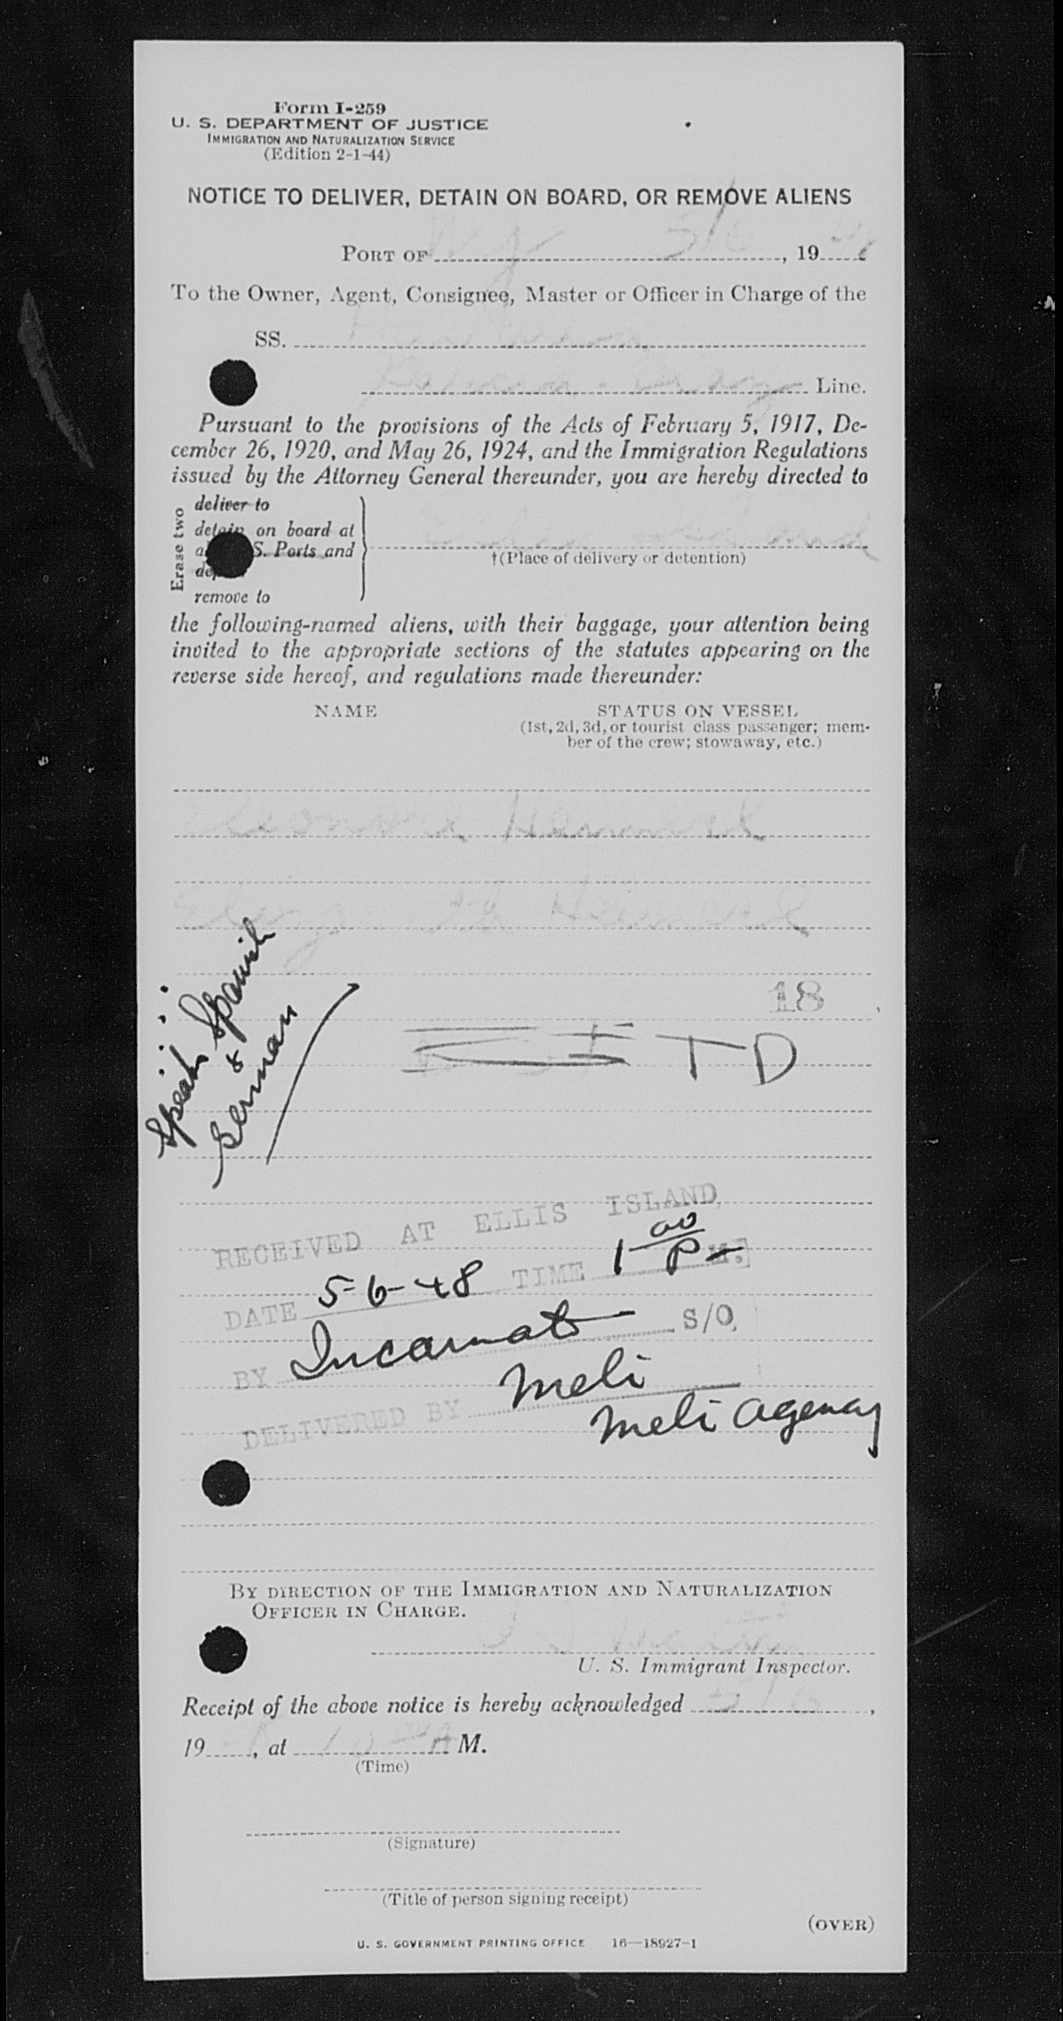 Form I-259
U. S. DEPARTMENT OF JUSTICE
IMMIGRATION AND NATURALIZATION SERVICE
(Edition 2-1-44)
NOTICE TO DELIVER, DETAIN ON BOARD, OR REMOVE ALIENS
PORT OF 5/6, 19
To the Owner, Agent, Consignee, Master or Officer in Charge of the
SS.
Line.
Pursuant to the provisions of the Acts of February 5, 1917, De-
cember 26, 1920, and May 26, 1924, and the Immigration Regulations
issued by the Attorney General thereunder, you are hereby directed to
Erase two
deliver to
detain on board at
S. Ports and
remove to
Island
†(Place of delivery or detention)
the following-named aliens, with their baggage, your attention being
invited to the appropriate sections of the statutes appearing on the
reverse side hereof, and regulations made thereunder:
NAME STATUS ON VESSEL
(1st, 2d, 3d, or tourist class passenger; mem-
ber of the crew; stowaway, etc.)
18
Speak Spanish
&
German
T D
RECEIVED AT ELLIS ISLAND,
DATE 5-6-48 TIME 1 00 P M.
BY Incarnato S/O,
DELIVERED BY Meli
Meli Agency
BY DIRECTION OF THE IMMIGRATION AND NATURALIZATION
OFFICER IN CHARGE.
U. S. Immigrant Inspector.
Receipt of the above notice is hereby acknowledged ,
19 , at M.
(Time)
(Signature)
(Title of person signing receipt)
(OVER)
U. S. GOVERNMENT PRINTING OFFICE 16—18927-1